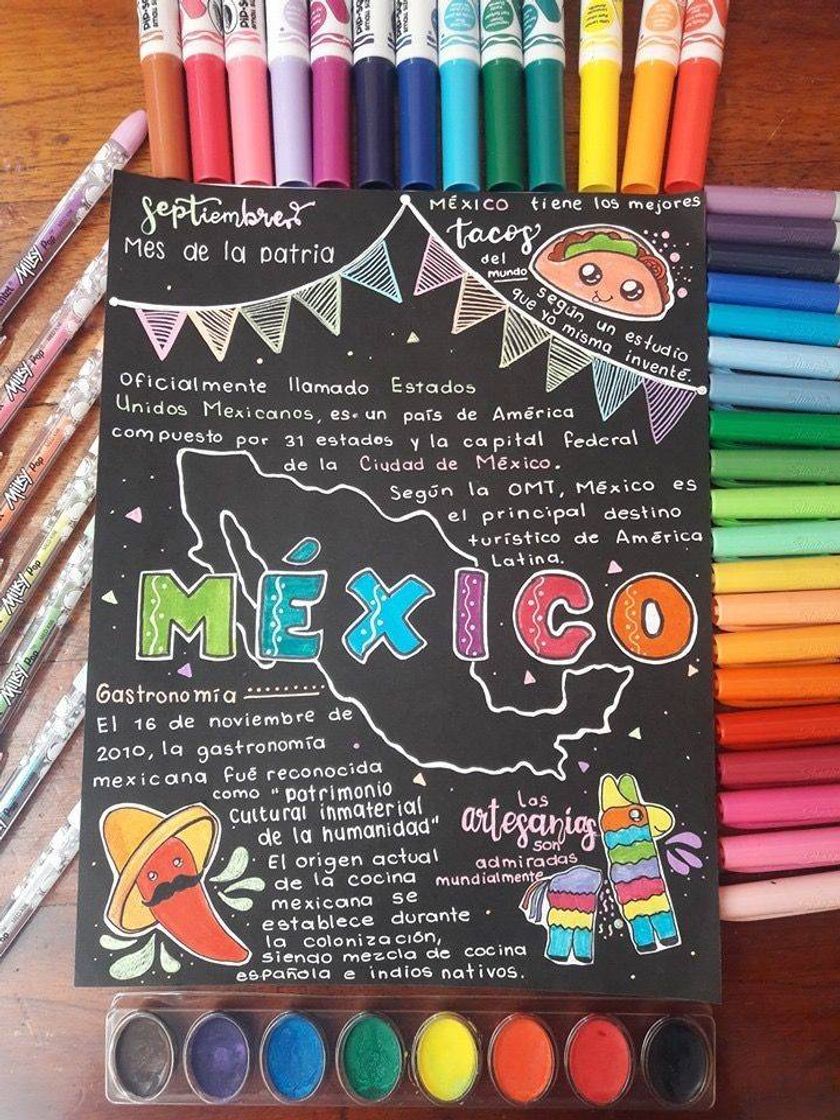 Septiembre
Mes de la patria
MÉXICO tiene los mejores
tacos
del
mundo
según un estudio
que yo misma inventé.
Oficialmente llamado Estados
Unidos Mexicanos, es un país de América
compuesto por 31 estados y la capital federal
de la Ciudad de México.
Según la OMT, México es
el principal destino
turístico de América
Latina.
MÉXICO
Gastronomía
El 16 de noviembre de
2010, la gastronomía
mexicana fué reconocida
como "patrimonio
cultural inmaterial
de la humanidad"
El origen actual
de la cocina
mexicana se
establece durante
la colonización,
siendo mezcla de cocina
española e indios nativos.
las
artesanías
son
admiradas
mundialmente
MILKY Pop
MILKY Pop
MILKY Pop
MILKY Pop
MILKY Pop
MILKY